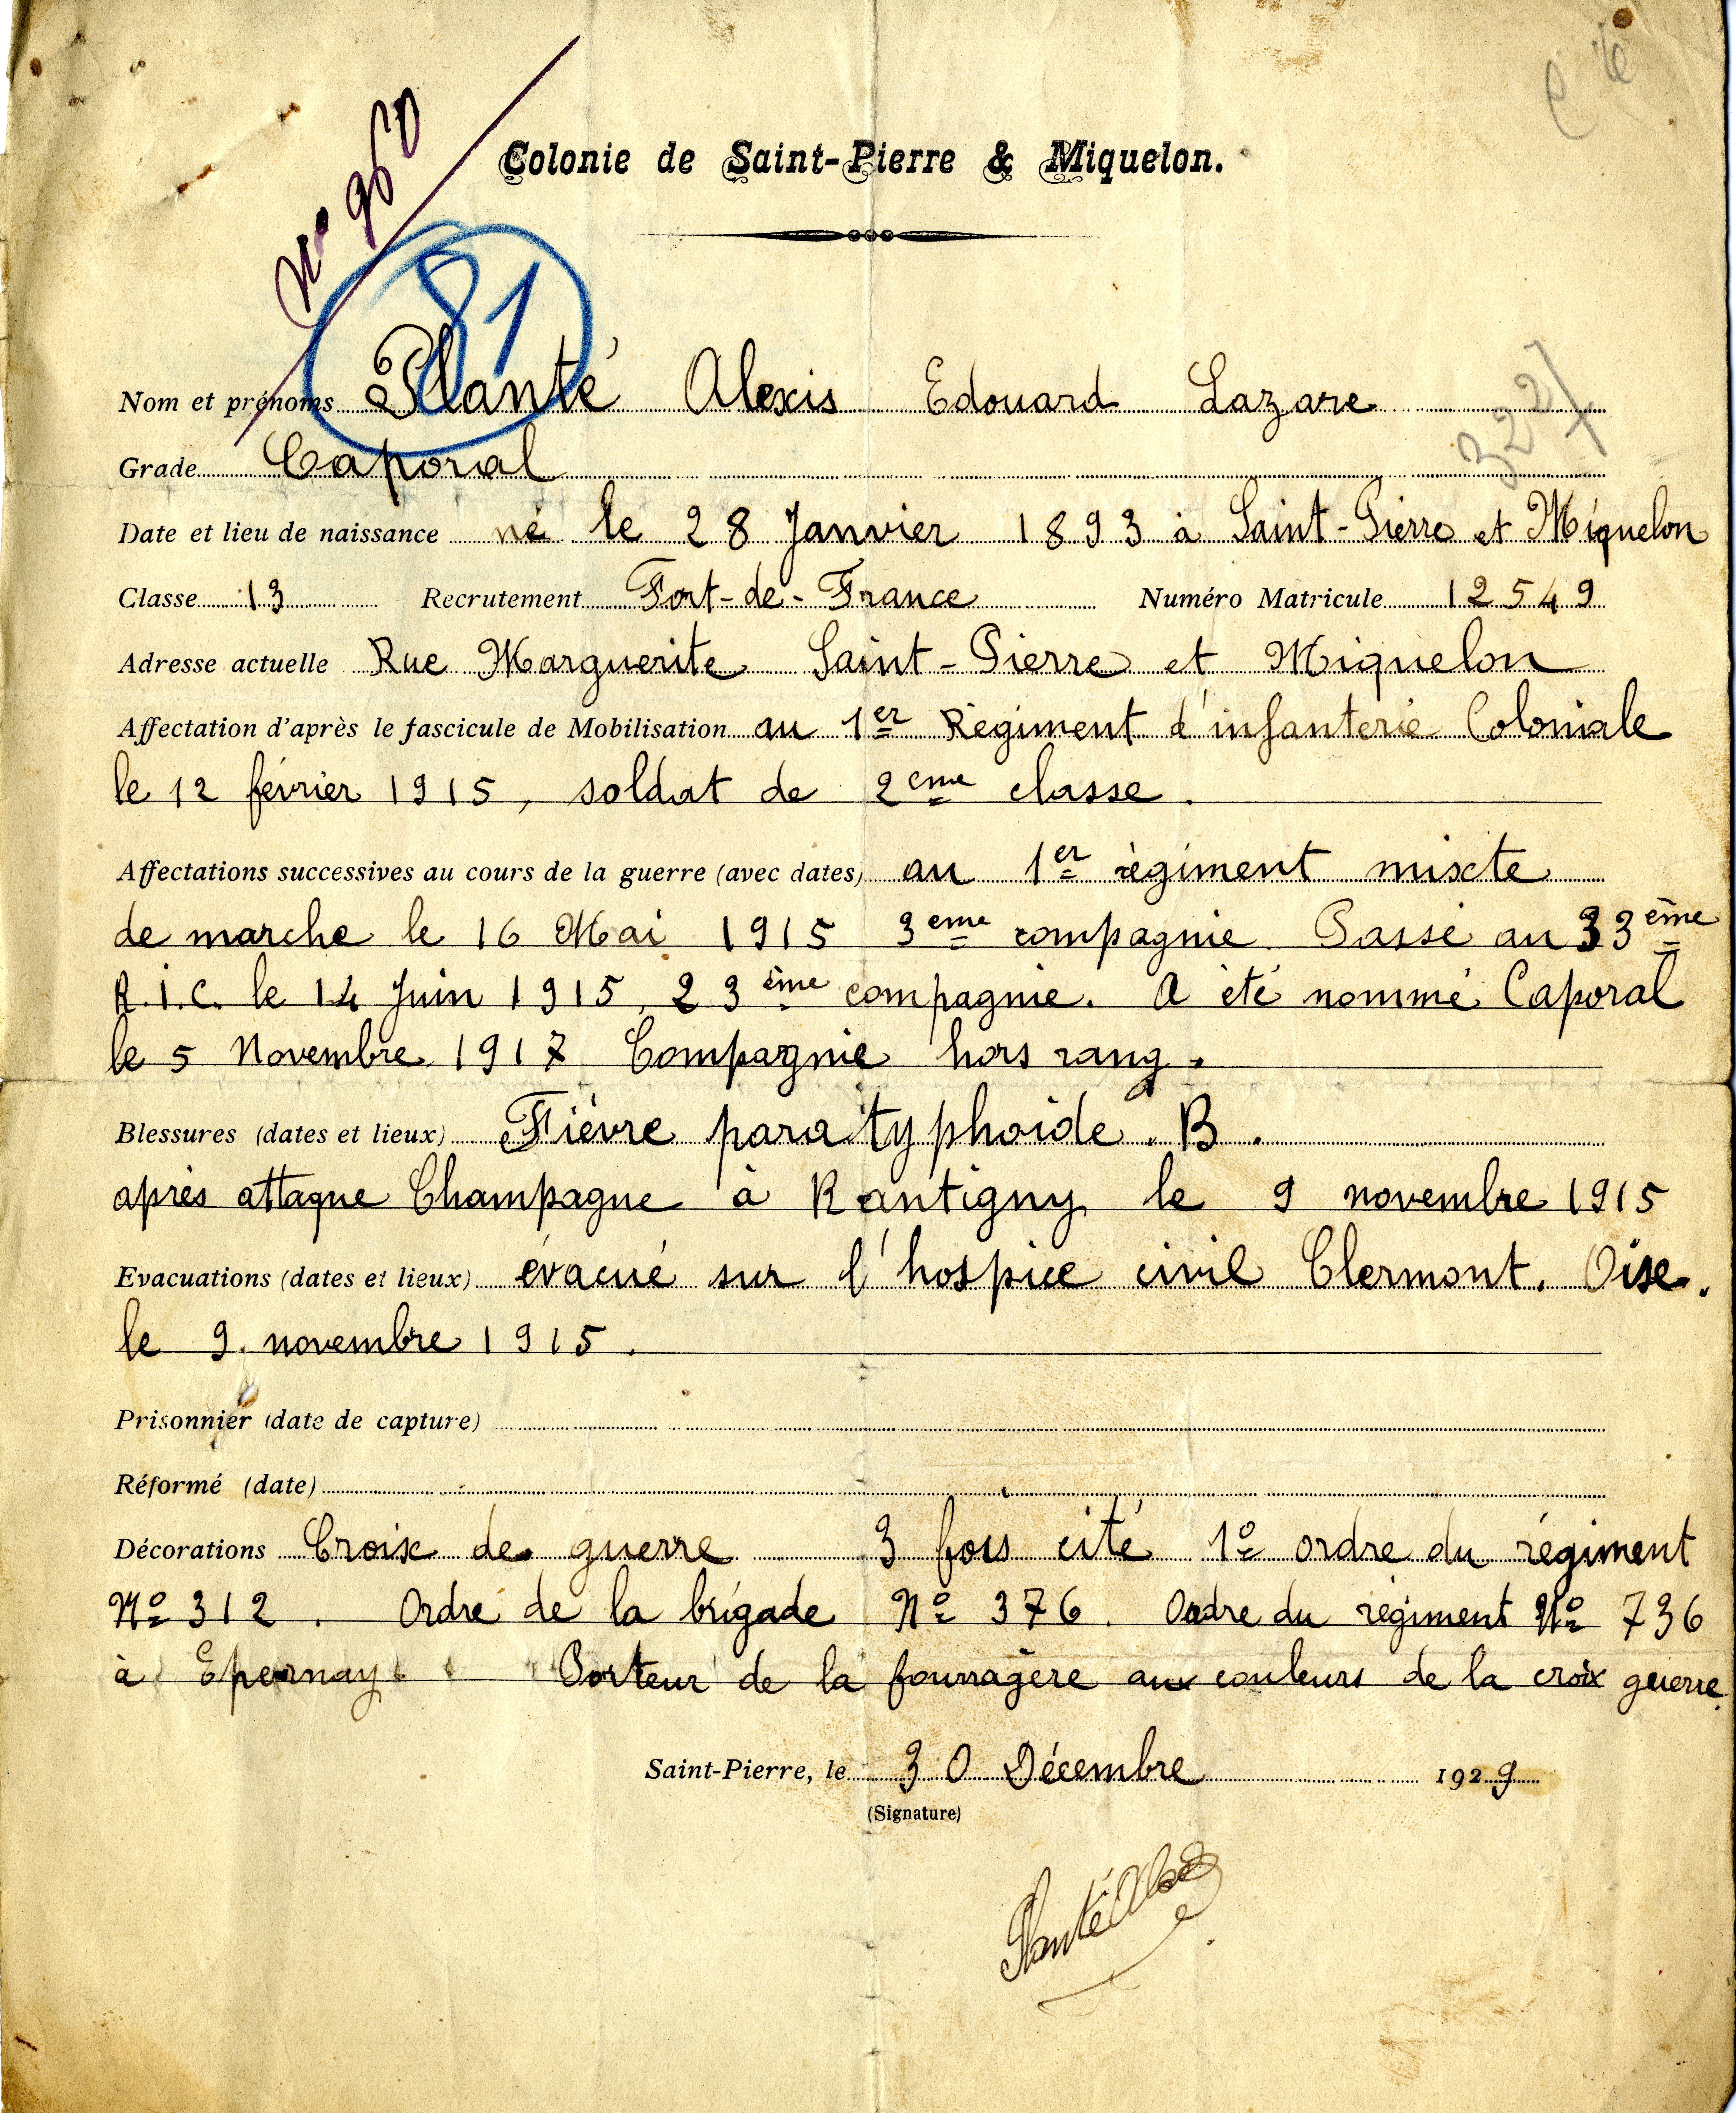 Colonie de Saint-Pierre & Miquelon.
No 960
81
Nom et prénoms Planté Alexis Edouard Lazare
327
Grade Caporal
Date et lieu de naissance né le 28 Janvier 1893 à Saint-Pierre et Miquelon
Classe 13 Recrutement Fort-de-France Numéro Matricule 12549
Adresse actuelle Rue Marguerite Saint-Pierre et Miquelon
Affectation d'après le fascicule de Mobilisation au 1er Régiment d'infanterie Coloniale
le 12 février 1915, soldat de 2eme classe.
Affectations successives au cours de la guerre (avec dates) au 1er règiment mixte
de marche le 16 Mai 1915 3eme compagnie. Passé au 33ème
R.I.C. le 14 Juin 1915, 23ème compagnie. A été nommé Caporal
le 5 Novembre 1917 Compagnie hors rang.
Blessures (dates et lieux) Fièvre paratyphoïde. B.
après attaque Champagne à Rantigny le 9 novembre 1915
Evacuations (dates et lieux) évacué sur l'hospice civil Clermont. Oise.
le 9. novembre 1915.
Prisonnier (date de capture)
Réformé (date)
Décorations Croix de guerre 3 fois cité 1o ordre du régiment
No 312. Ordre de la brigade No 376. Ordre du régiment No 736
à Epernay. Porteur de la fourragère aux couleurs de la croix guerre.
Saint-Pierre, le 30 Décembre 1929
(Signature)
Planté Alexis